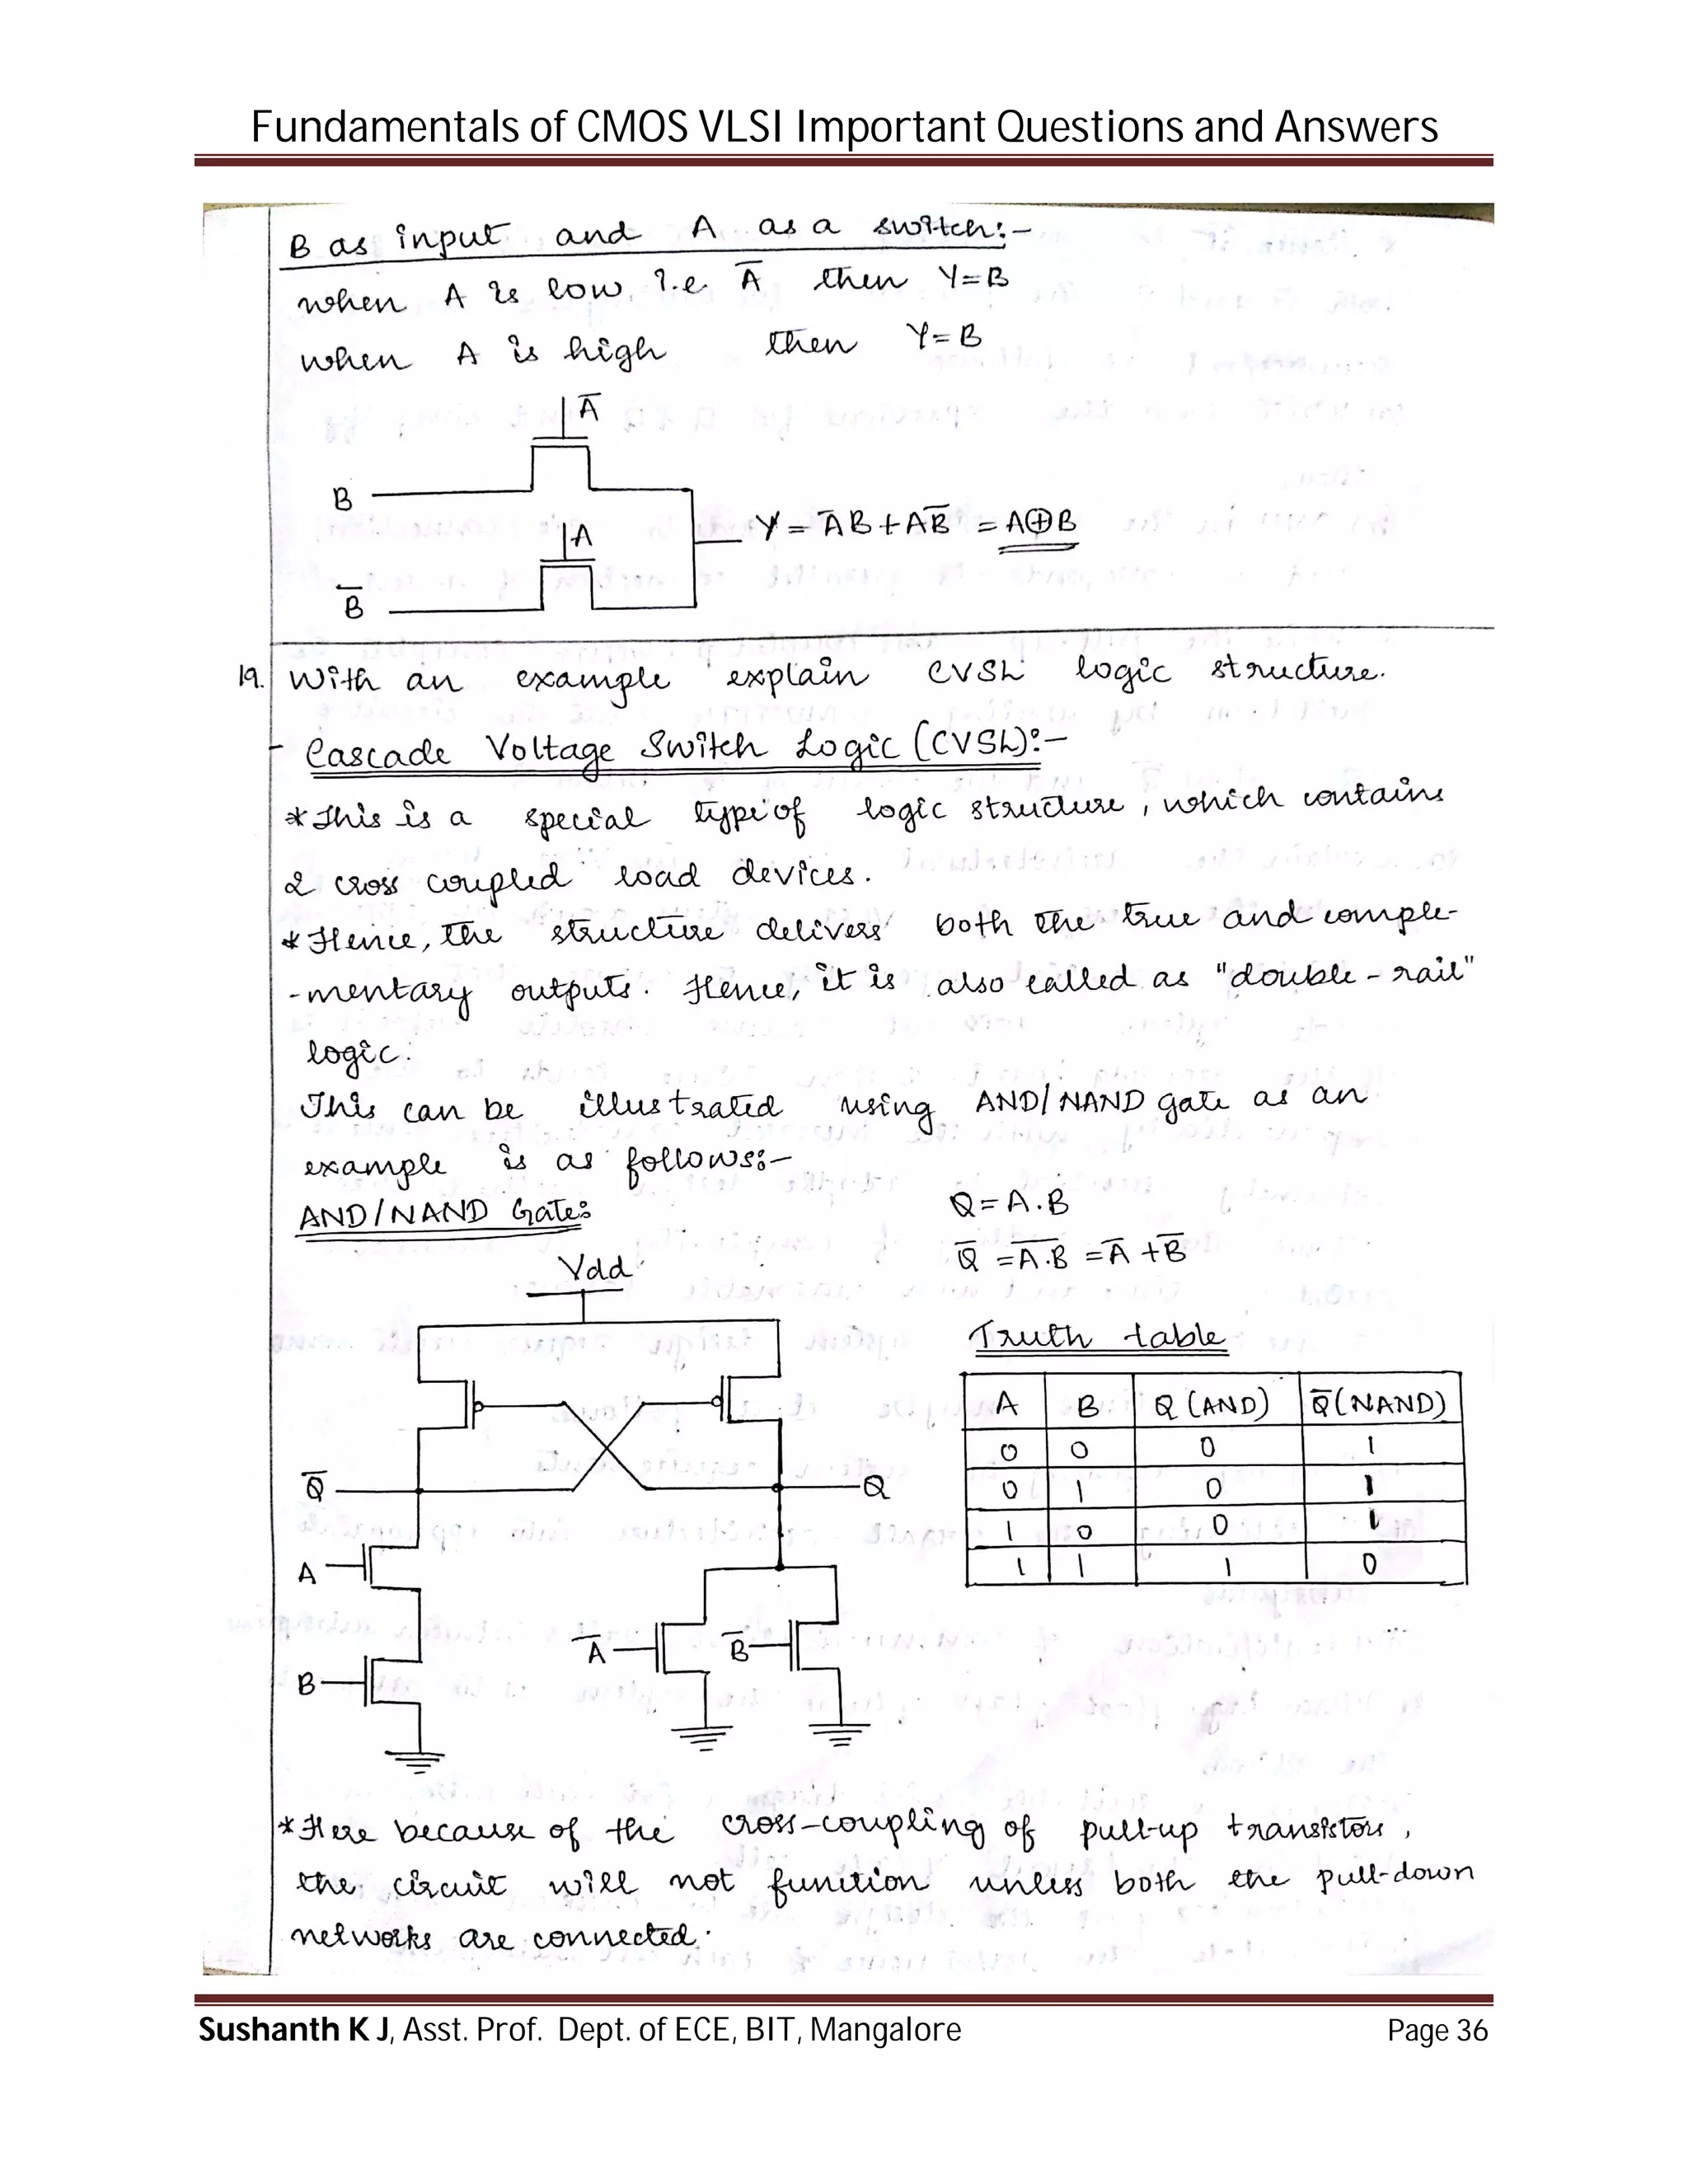 Fundamentals of CMOS VLSI Important Questions and Answers
B as input and A as a switch:-
when A is low i.e. A̅ then Y=B
when A is high then Y=B
A̅
B
A
B̅
Y = A̅B + AB̅ = A⊕B
19. With an example explain CVSL logic structure.
- Cascade Voltage Switch Logic (CVSL):-
* This is a special type of logic structure, which contains
2 cross coupled load devices.
* Hence, the structure delivers both the true and comple-
-mentary outputs. Hence, it is also called as "double-rail"
logic.
This can be illustrated using AND/NAND gate as an
example is as follows:-
AND/NAND Gate:
Q = A.B
Q̅ = A̅.̅B̅ = A̅ + B̅
Vdd
Truth table
A B Q (AND) Q̅ (NAND)
0 0 0 1
0 1 0 1
1 0 0 1
1 1 1 0
Q̅
Q
A
A̅
B̅
B
* Here because of the cross-coupling of pull-up transistors,
the circuit will not function unless both the pull-down
networks are connected.
Sushanth K J, Asst. Prof. Dept. of ECE, BIT, Mangalore Page 36